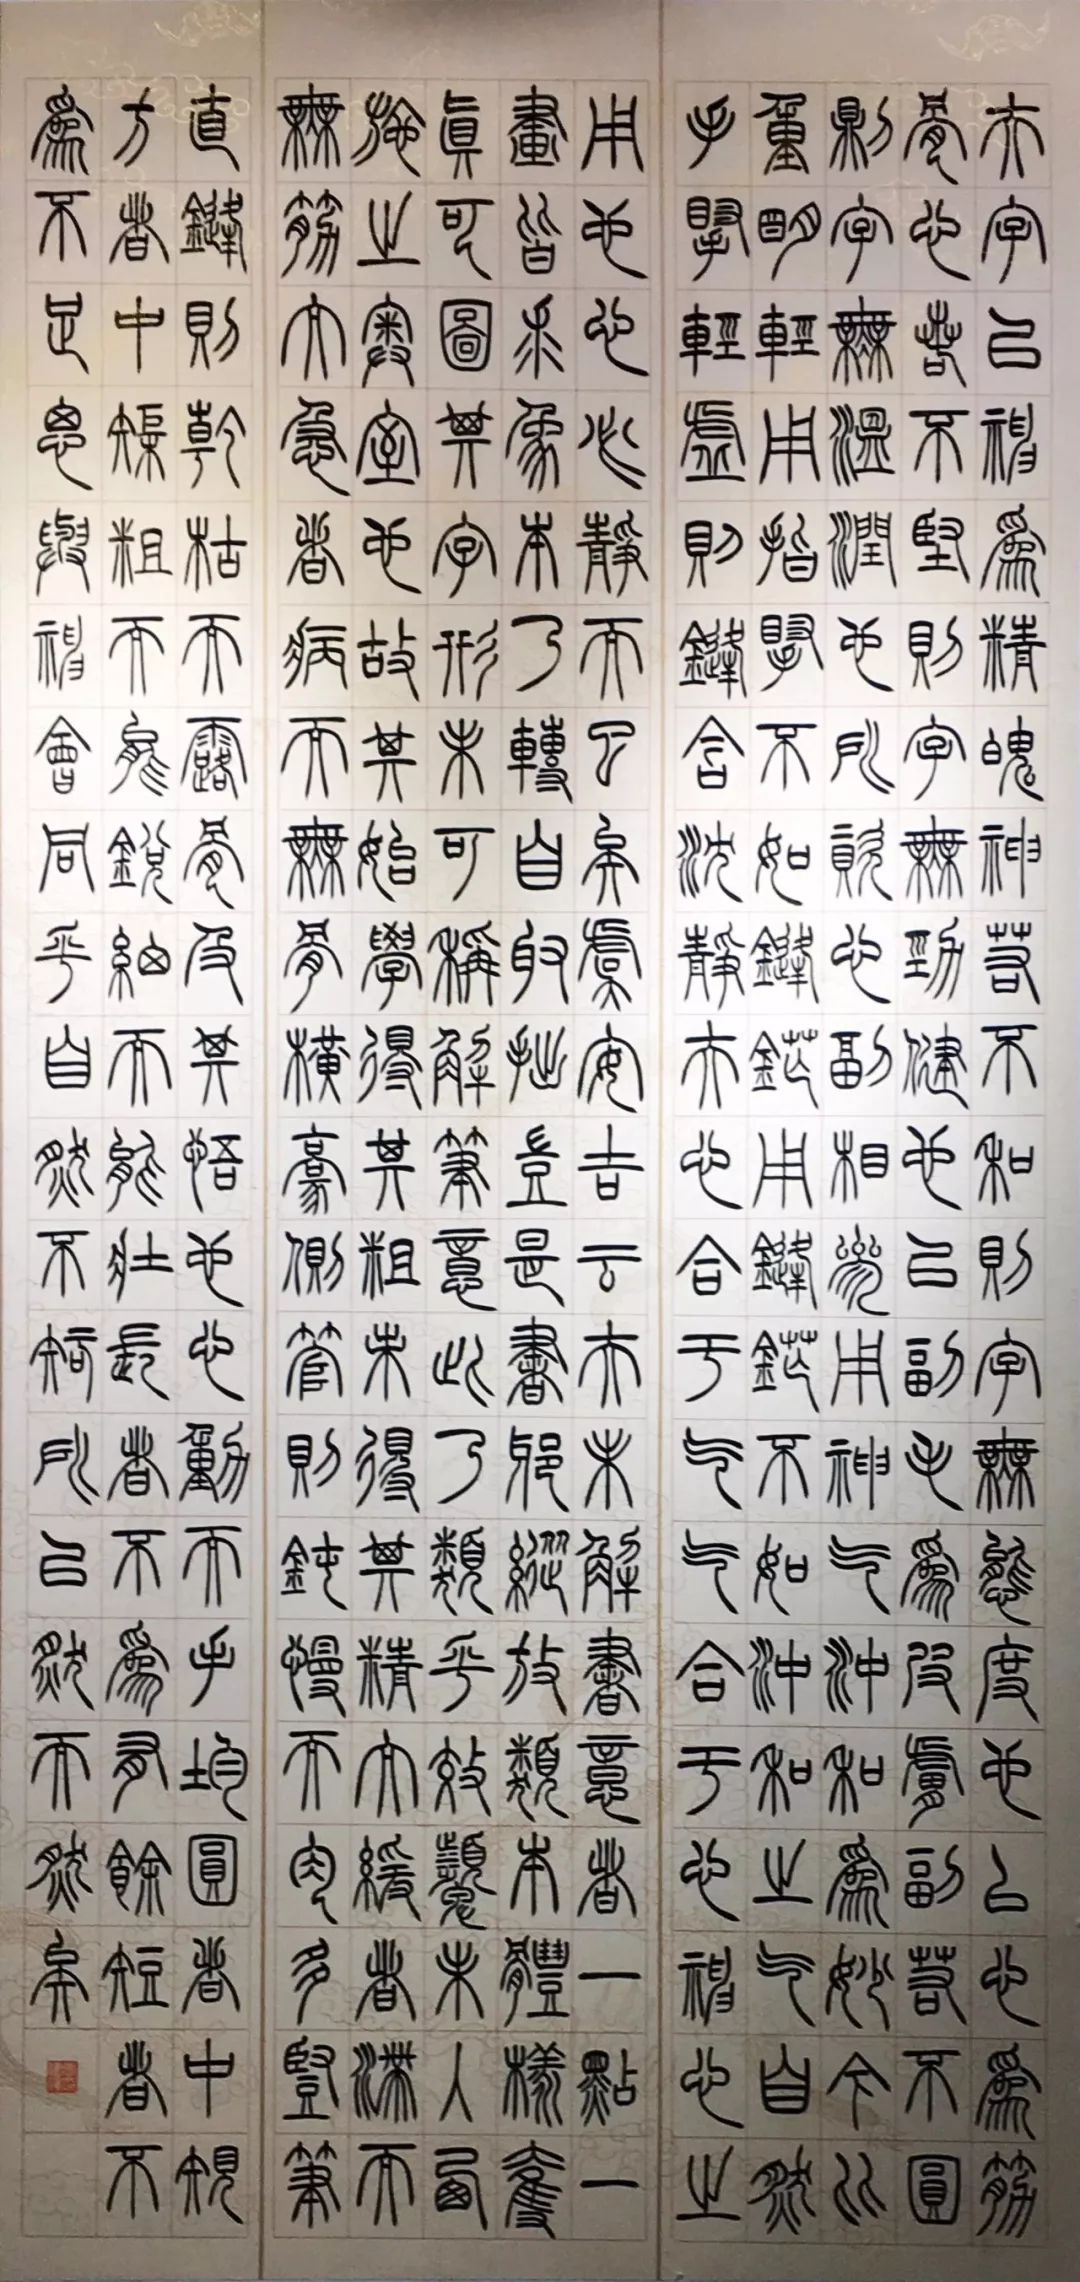 夫字以神為精魄神若不和則字無態度也以心為筋
骨心若不堅則字無勁健也以副毛為皮膚副若不圓
則字無溫潤也所資心副相參用神氣沖和為妙今比
重明輕用指腕不如鋒鋩用鋒鋩不如沖和之氣自然
手腕輕虛則鋒含沈靜夫心合于氣氣合于心神心之
用也心必靜而已矣虞安吉云夫未解書意者一點一
畫皆求象本乃轉自取拙豈是書邪縱放類本體樣奪
真可圖其字形未可稱解筆意此乃類乎效顰未入西
施之奧室也故其始學得其粗未得其精太緩者滯而
無筋太急者病而無骨橫豪側管則鈍慢而肉多豎筆
直鋒則乾枯而露骨及其悟也心動而手均圓者中規
方者中矩粗而能銳細而能壯長者不為有餘短者不
為不足思與神會同乎自然不知所以然而然矣